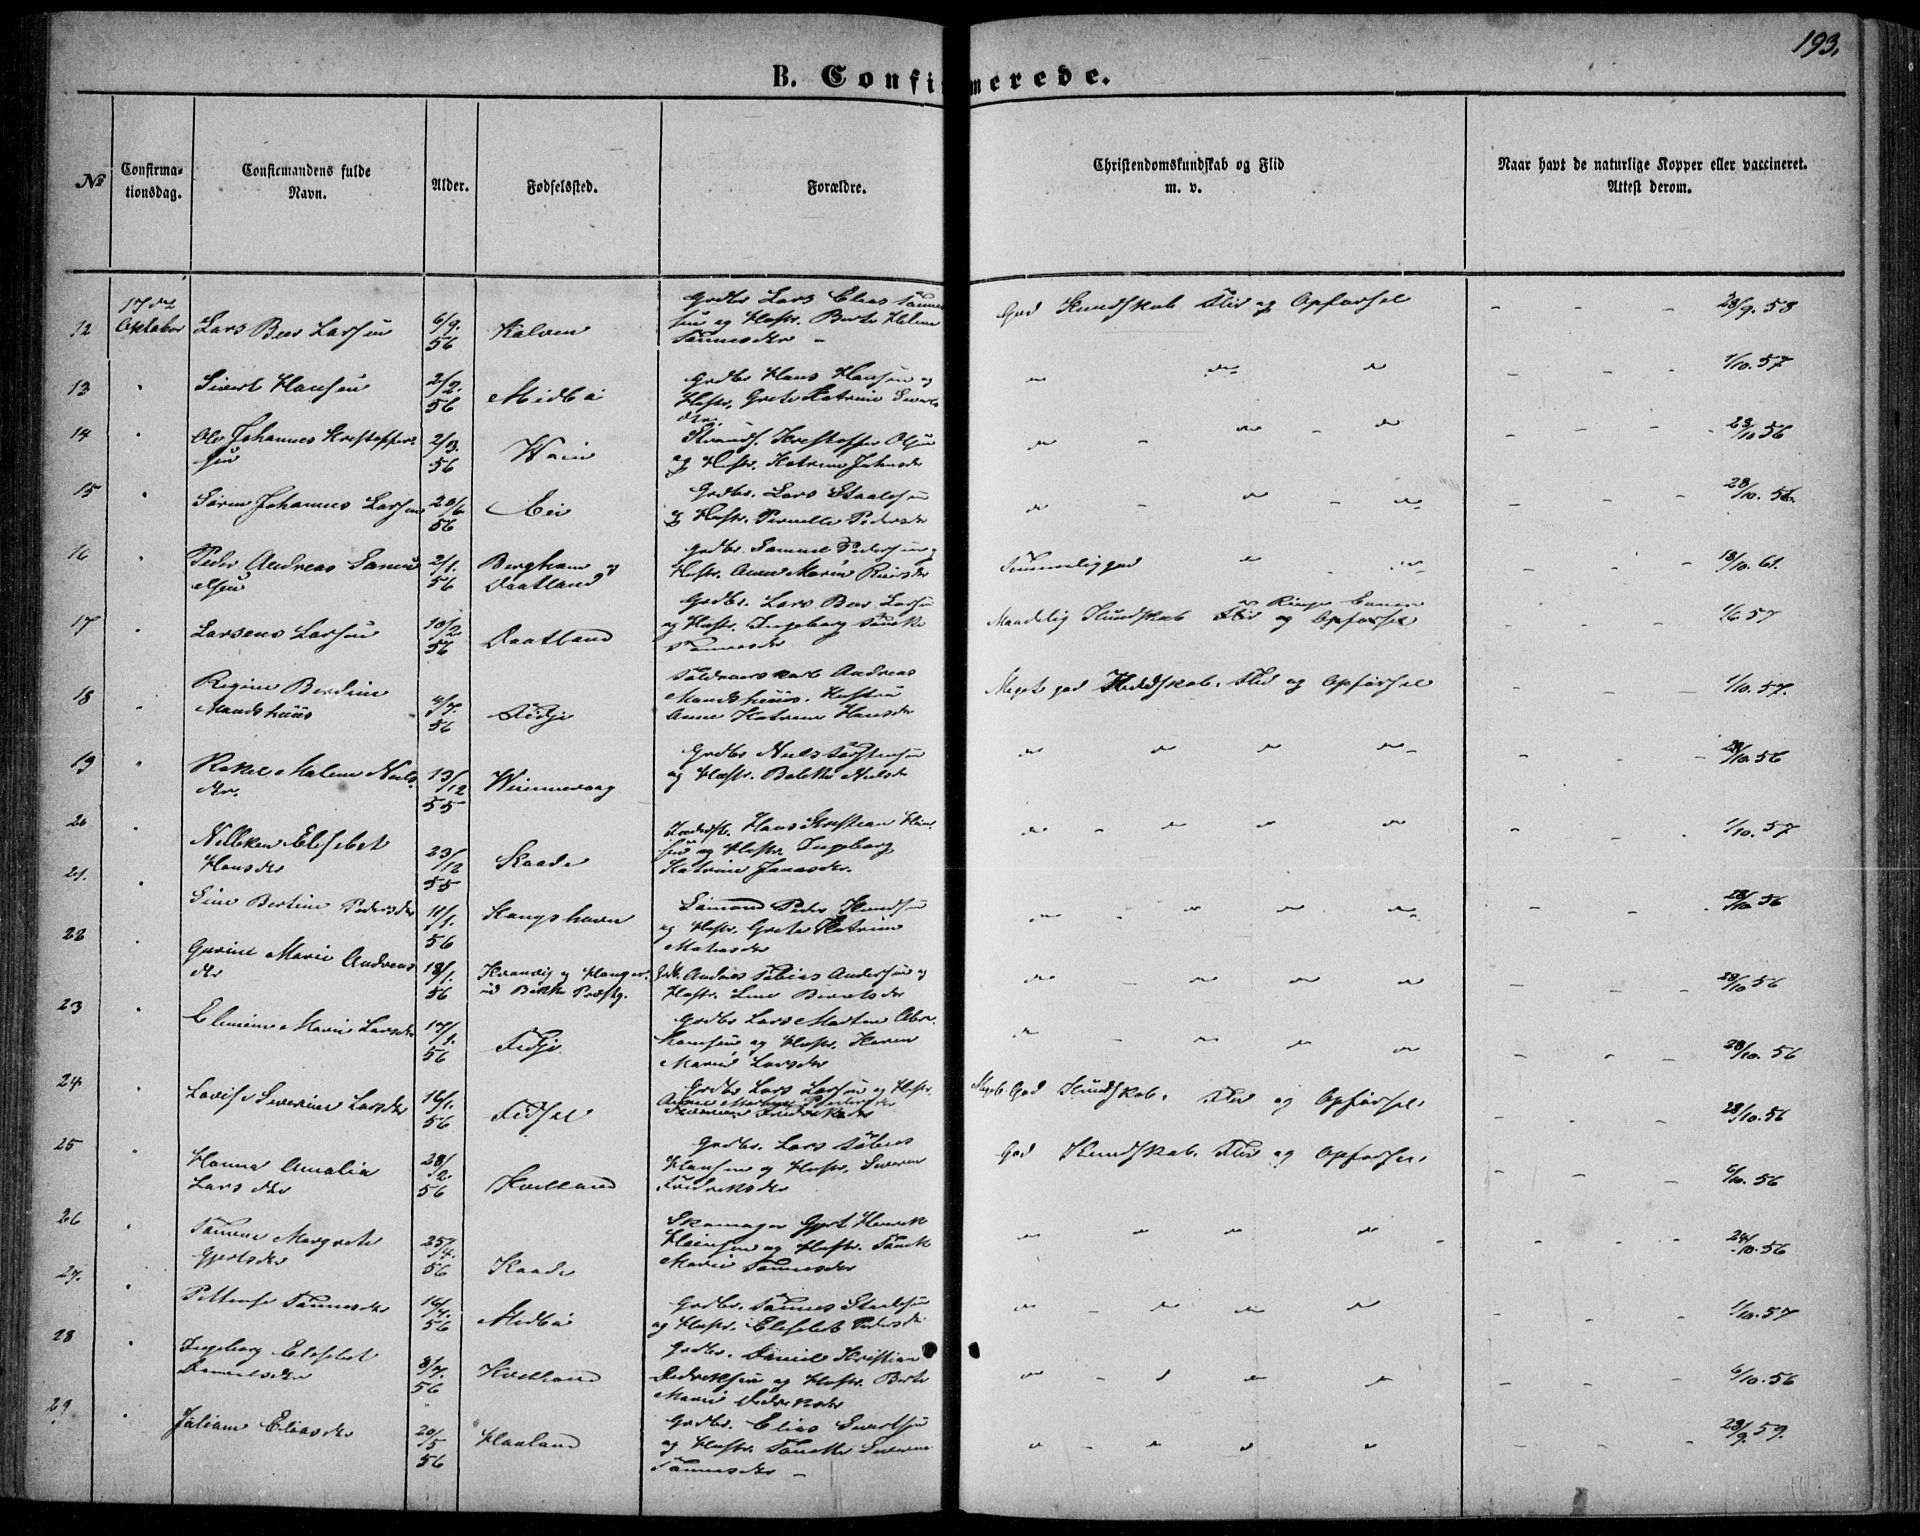 193.
B. Confirmerede.
№
Confirma-
tionsdag.
Confirmandens fulde
Navn.
Alder.
Fødselssted.
Forældre.
Christendomskundskab og Flid
m. v.
Naar havt de naturlige Kopper eller vaccineret.
Attest derom.
12
17de
Oktober
Lars Beer Larsen
6/9.
56
Kalven
Grdbr Lars Elias Tønnes
sen og Hustr. Berte Helene
Tønnesdtr
God Kundskab Flid og Opførsel
28/9. 58
13
Sivert Hansen
2/2.
56
Midbø
Grdbr Hans Hansen og
Hustr. Grete Katrine Siverts
dtr.
1/10. 57
14
Ole Johannes Kristoffer
sen
2/3.
56
Strands. Kristoffer Olsen
og Hustr. Katrine Johnsdtr
23/10 56
15
Søren Johannes Larsen
20/6
56
Eie
Grdbr. Lars Staalesen
og Hustr. Pernelle Pedersdtr
28/10. 56.
16
Peder Andreas Samu
elsen
2/1.
56
Berghom og
Daatland
Grdbr. Samuel Pedersen og
Hustr. Anne Marie
Temmelig god
18/10. 61.
17
Larsens Larsen
10/2
56
Daatland
Grdbr. Lars Beer Larsen
og Hustr. Ingeborg Tønette
Tønnesdtr
Maadelig Kundskab Flid og Opførsel
1/6 57
18
Regine Berdine
Mandshuus
4/7.
56
Fidje
Andreas
Mandshuus. Hustru
Anne Katrine Hansdtr
Meget god Kundskab. Flid og Opførsel
1/10. 57.
19
Rakel Malene Niels
dtr.
13/12
55
Grdbr Niels Torstensen
og Hustr. Bolette Nielsdtr
28/10. 56
20
Nilleken Elesebet
Hansdtr
23/12
55
Kaade
Hans Kristian Han
sen og Hustr. Ingeborg
Katrine Jonasdtr.
1/10. 57
21.
Sine Bertine Pedersdtr
11/1.
56
Kongshavn
Sømand Peder Knudsen
og Hustr. Grete Katrine
28/10 56
22
Gurine Marie Andreas
dtr
18/1.
56
Andreas Tobias Andersen og
Hustr. Sine Berntsdtr
28/10 56
23
Elenine Marie Larsdtr
17/1.
56
Fidje
Grdbr Lars Martin Abra
hamsen og Hustr. Karen
Marie Larsdtr
28/10. 56
24
Lovise Severine Larsdtr
16/1.
56
Fidsel
Grdbr Lars Larsen og Hustr.
Meget God Kundskab. Flid og Opførsel.
28/10. 56
25
Hanna Amalia
Larsdtr
28/2.
56
Kvelland
Grdbr. Lars Tobias
Hansen og Hustr. Severine
Fredriksdtr
God Kundskab. Flid og Opførsel.
6/10. 56
26
Tønnene Margrete
Gjertsdtr
25/4.
56
Kaade
Skomager Gjert Henrik
Hansen og Hustr. Tønette
Marie Tønnesdtr
24/10. 56
27.
Tønnesdtr
16/4.
56
Midbø
Grdbr. Tønnes Staalesen
og Hustr. Elesebet Pedersdtr
1/10. 57
28
Ingeborg Elesebet
Danielsdtr
8/7.
56
Kvelland
Grdbr. Daniel Kristian
Didriksen og Hustr. Berte
Marie Didriksdtr
6/10. 56
29
Juliane Eliasdtr
20/5
56
Haaland
Grdbr. Elias Sivertsen
og Hustr. Tønette Severine
Tønnesdtr
28/9. 59.